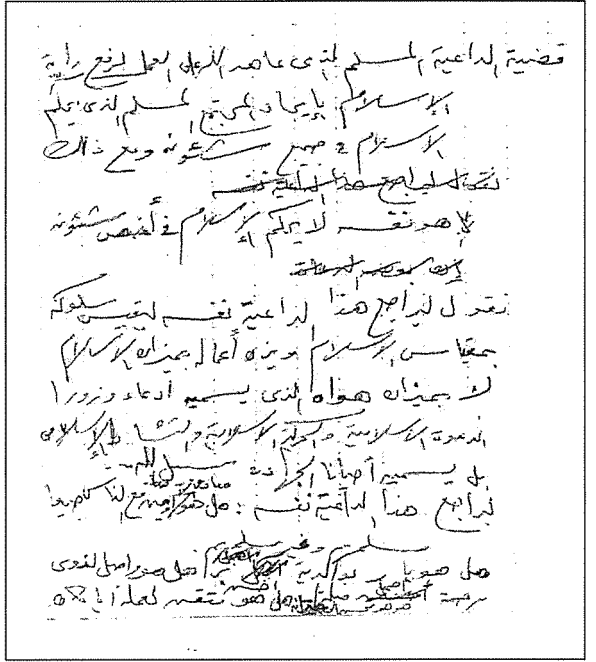 قضية الداعية المسلم الذى عاهد الله على العمل لرفع راية
الإسلام بإيجاد المجتمع المسلم الذى يحكم
الاسلام فى جميع شئونه ومع ذلك
ليراجع هذا الداعية نفسه
هو نفسه لا يحكم الإسلام فى أخص شئونه
نقول ليراجع هذا الداعية نفسه ليقيس سلوكه
بمقياس الاسلام ويزن أعماله بميزان الاسلام
لا بميزان هواه الذى يسميه ادعاء وزورا
الدعوة الاسلامية والحركة الاسلامية والنشاط الإسلامى
بل يسميه أحيانا الجهاد فى سبيل الله
ليراجع هذا الداعية نفسه : هل هو مع الناس
سلمهم وغير سلمهم
هل هو بار بوالديه هل هو واصل لذوى
رحمه هل هو متقن لعمله